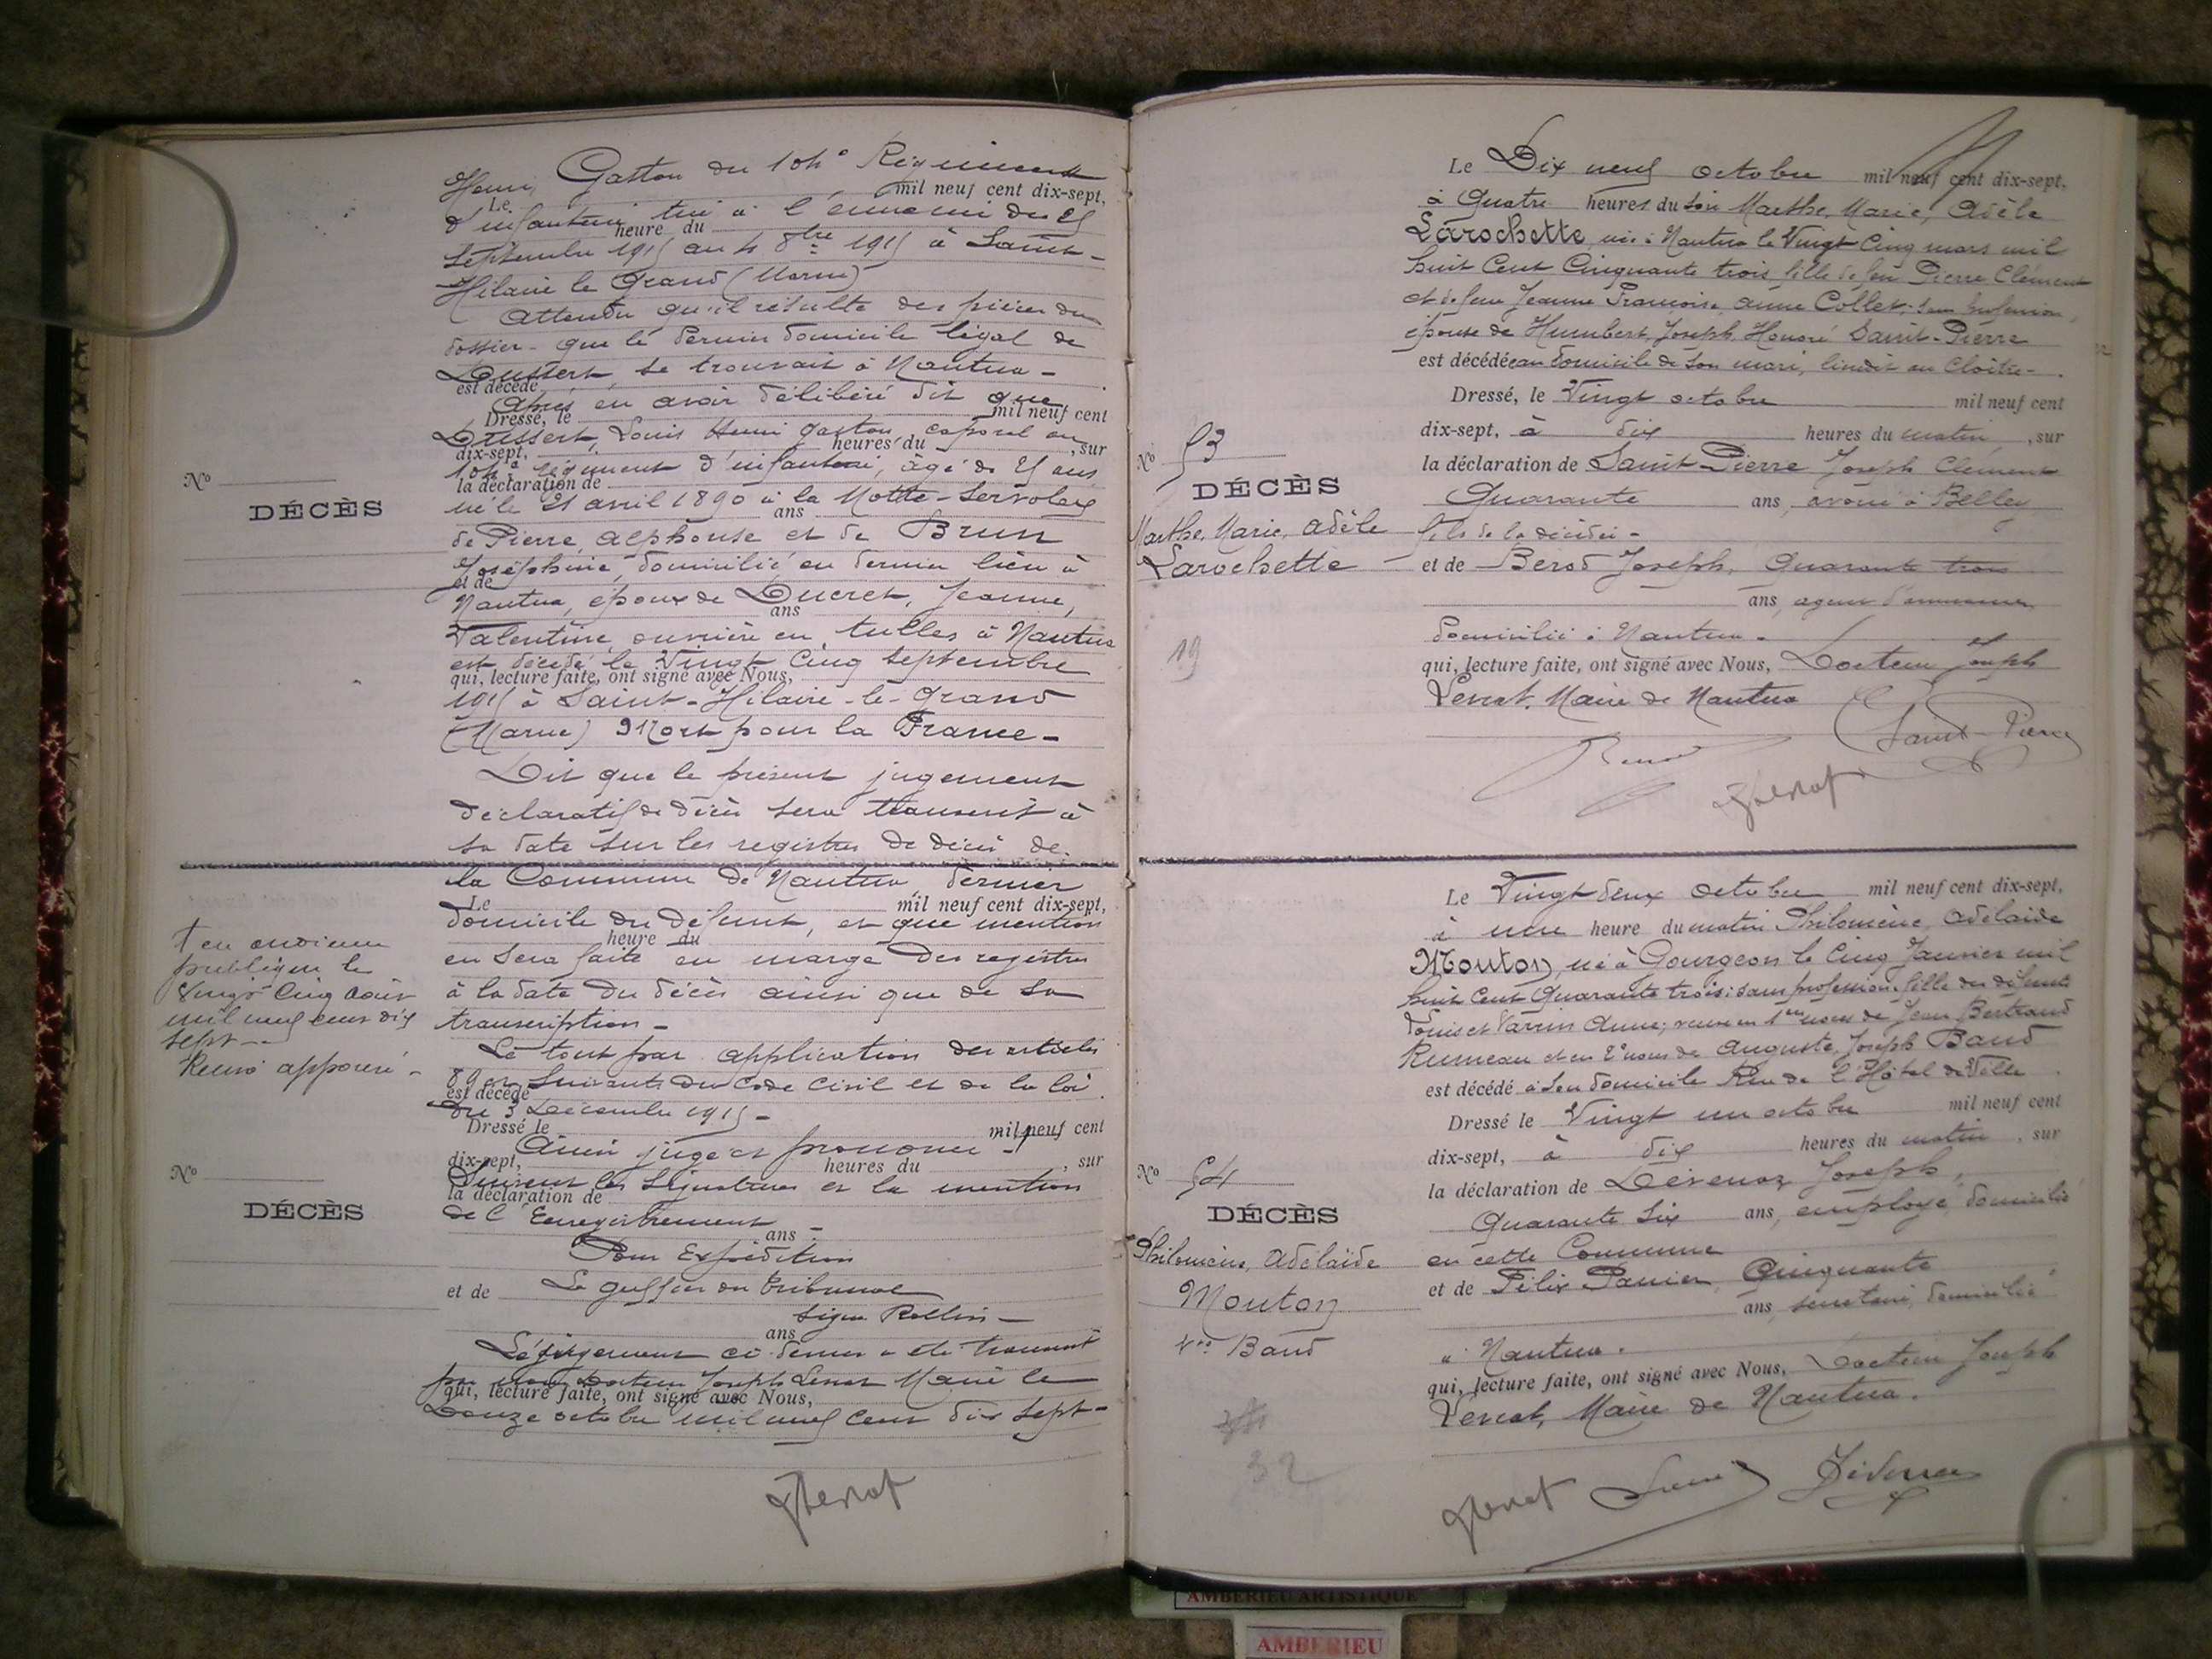 Henri, Gaston du 104e Régiment
Le mil neuf cent dix-sept,
d'infanterie tué à l'ennemi du 25
heure du
Septembre 1915 au 4 8bre 1915 à Saint-
Hilaire le Grand (Marne)
Attendu qu'il résulte des pièces du
dossier que le dernier domicile légal de
Dussert se trouvait à Nantua -
est décédé
Après en avoir délibéré dit que
Dressé, le mil neuf cent
Dussert, Louis Henri Gaston caporal au
dix-sept, heures du , sur
104e régiment d'infanterie, âgé de 25 ans
la déclaration de
né le 21 avril 1890 à la Motte-Servolex
ans
de Pierre, Alphonse et de Brun
Joséphine, domicilié en dernier lieu à
et de
Nantua, époux de Ducret, Jeanne,
ans
Valentine, ouvrière en tulles à Nantua
est décédé le Vingt Cinq Septembre
qui, lecture faite, ont signé avec Nous,
1915 à Saint-Hilaire-le-Grand
(Marne) Mort pour la France -
Dit que le présent jugement
déclaratif de décès sera transcrit à
sa date sur les registres de décès de
la Commune de Nantua, dernier
Le mil neuf cent dix-sept,
domicile du défunt, et que mention
heure du
en sera faite en marge des registres
à la date du décès ainsi que de sa
transcription -
Le tout par application des articles
89 et Suivants du Code Civil et de la loi
est décédé
du 3 Décembre 1915 -
Dressé le mil neuf cent
Ainsi jugé et prononcé -
dix-sept, heures du , sur
Suivent les Signatures et la mention
la déclaration de
de l'Enregistrement -
ans
Pour Expédition
et de Le greffier du tribunal
Signé Rollin -
ans
Le jugement ci-dessus a été transcrit
par Nous Docteur Joseph Maire le
qui, lecture faite, ont signé avec Nous,
Douze octobre mil neuf cent dix sept -
No
DÉCÈS
en audience
publique le
Vingt Cinq août
mil neuf cent dix
sept -
Renvoi approuvé -
No
DÉCÈS
Le Dix neuf octobre mil neuf cent dix-sept,
à Quatre heures du soir Marthe, Marie, Adèle
Larochette, née à Nantua le Vingt Cinq mars mil
huit Cent Cinquante trois fille de feu Pierre Clément
et de feue Jeanne Françoise Anne Collet, sans profession,
épouse de Humbert, Joseph Honoré Saint-Pierre
est décédée au domicile de son mari, lieudit au Cloître -
Dressé, le Vingt octobre mil neuf cent
dix-sept, à dix heures du matin , sur
la déclaration de Saint-Pierre Joseph Clément
Quarante ans, avoué à Belley
fils de la décédée -
et de Berod Joseph, Quarante trois
ans, agent d'assurances
domicilié à Nantua -
qui, lecture faite, ont signé avec Nous, Docteur Joseph
Maire de Nantua
Saint-Pierre
No 53
DÉCÈS
Marthe, Marie, Adèle
Larochette
19
Le Vingt deux octobre mil neuf cent dix-sept,
à une heure du matin Philomène, Adélaïde
Mouton, née à Gourgeon le Cinq Janvier mil
huit Cent Quarante trois; sans profession, fille des défunts
Louis et Varrin Anne; veuve en 1res noces de Jean Bertrand
Rumeau et en 2e noces de Auguste, Joseph Baud
est décédé à son domicile Rue de l'Hôtel de Ville
Dressé le Vingt un octobre mil neuf cent
dix-sept, à dix heures du matin , sur
la déclaration de Joseph,
Quarante Six ans, employé, domicilié
en cette Commune
et de Félix Panier, Cinquante
ans, secrétaire, domicilié
à Nantua.
qui, lecture faite, ont signé avec Nous, Docteur Joseph
Maire de Nantua.
No 54
DÉCÈS
Philomène, Adélaïde
Mouton
Vve Baud
32
AMBERIEU ARTISTIQUE
AMBERIEU